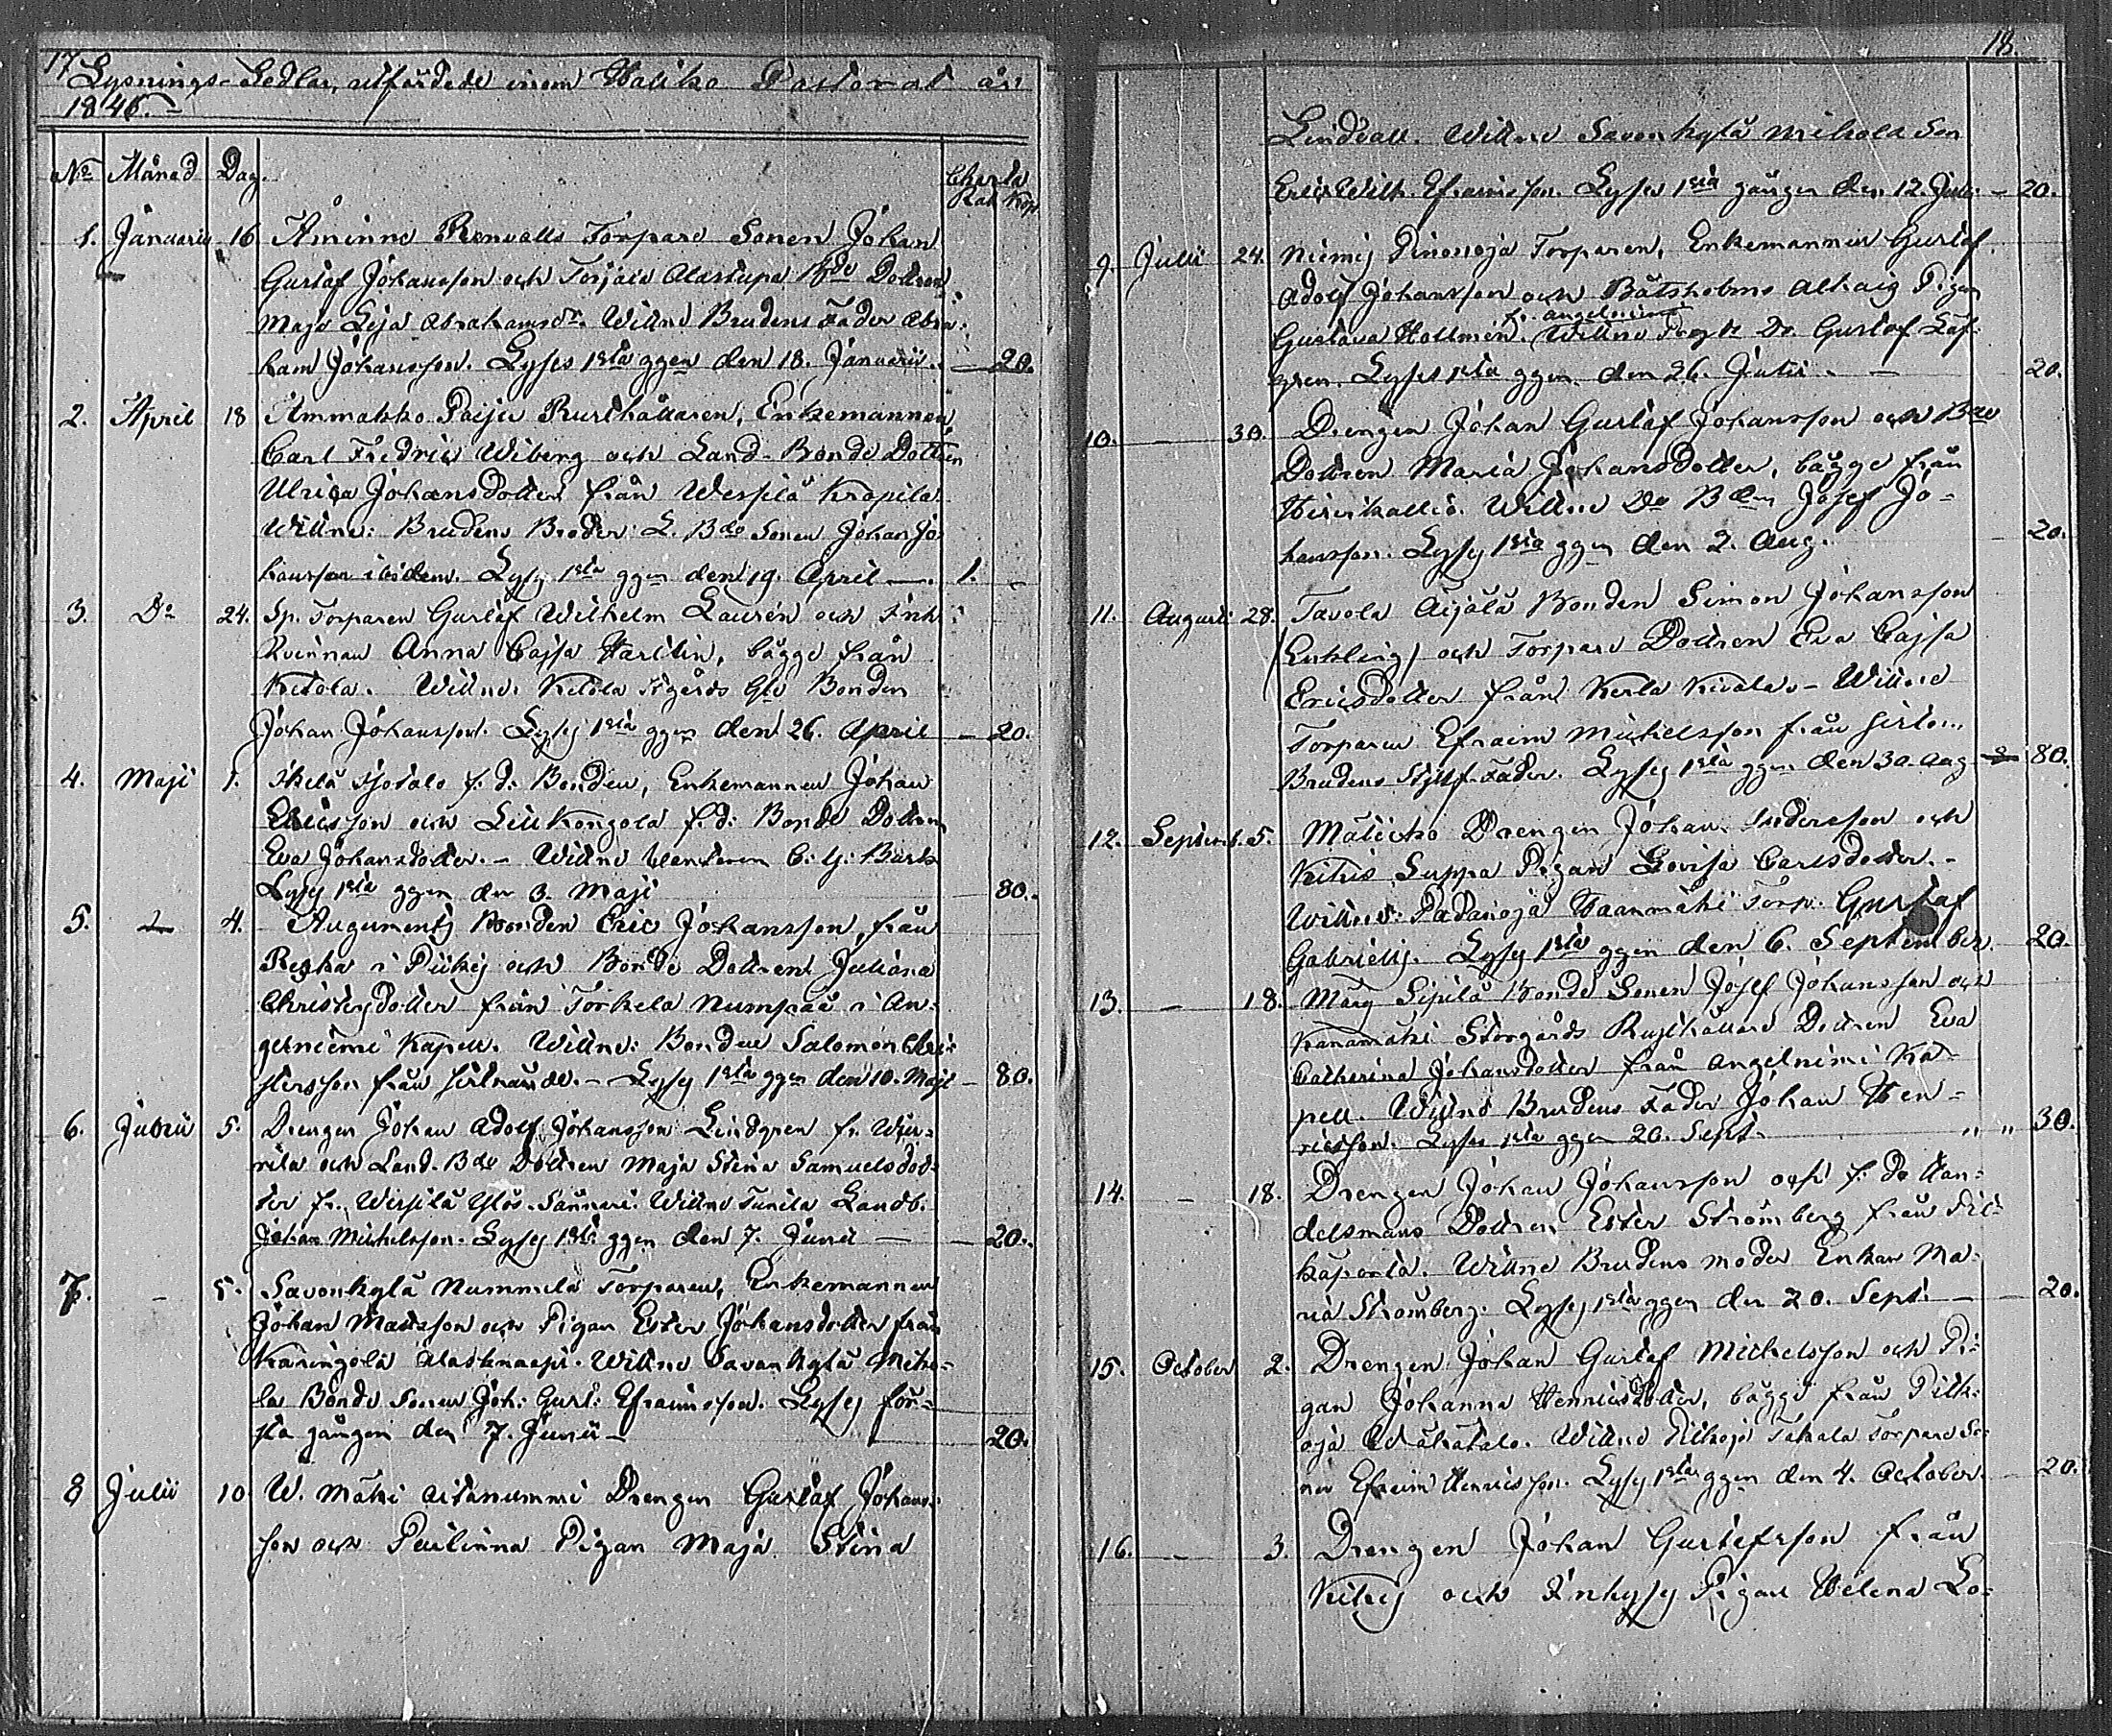 17
Lysnings-Sedlar, utfärdade inom Haliko Pastorat år
1846.
No Månad Dag. Charta
Rub. Kop.
1. Januarii 16 Åminne Renvalls Torpare Sonen Johan
Gustaf Johansson och Torjais Alastupa Bde Dottren
Maja Lisa Abrahamsdr. Wittne Brudens Fader Abra-
ham Johansson. Lyses 1sta ggen den 18. Januarii. — 20.
2. April 18 Ammakko Paiju Rusthållaren, Enkemannen
Carl Fredric Wiberg och Land-Bonde Dottren
Ulrica Johansdotter från Wersilä Kropila
Wittne: Brudens Broder L. Bde Sonen Johan Jo-
hansson ibidem. Lyses 1sta ggen den 19. April —. 1. —
3. Do 24. Sp. Torparen Gustaf Wilhelm Laurén och Enk
Qvinnan Anna Cajsa Harlin, bägge från
Ketola. Wittne. Ketola Bonden
Johan Johansson. Lyses 1sta ggen den 26. April — 20.
4. Maji 1. Isotalo f. d. Bonden, Enkemannen Johan
Ericsson och Kongola f. d. Bonde Dottren
Eva Johansdotter. — Wittne
Lyses 1sta ggen den 3. Maji 80.
5. 4. Bonden Eric Johansson, från
i Pikis och Bonde Dottren Juliana
Christersdotter från Torkela Numpää i An-
gelniemi Kapell. Wittne: Bonden Salomon Chri-
stersson från — Lyses 1sta ggen den 10. Maji — 80.
6. Junii 5. Drengen Johan Adolf Johansson Lindgren fr. Wiu-
rila och Land-Bde Dottren Maja Stina Samuelsdot-
ter fr. Wersilä Wittne Tunila Landb.
Johan Michelsson. Lyses 1sta ggen den 7. Junii — 20.
7. — 5. Savonkylä Nummela Torparen, Enkemannen
Johan Mattsson och Pigan Ester Johansdotter från
Karingola Wittne Savonkylä Miko-
la Bonde Sonen Joh: Gust: Efraimsson. Lyses för-
sta gången den 7. Junii — 20.
8 Julii 10 W. Mäki Aitanummi Drengen Gustaf Johans-
son och Pailinna Pigan Maja Stina
18.
Lindvall. Wittne Savonkylä Mikola Son
Eric Wilh. Efraimsson. Lyses 1sta gången den 12. Julii — 20.
9. Julii 24. Torparen, Enkemannen Gustaf
Adolf Johansson och Båtsholms Pigan
fr. Angelniemi
Gustava Hallmén. Wittne Do Gustaf Löf-
gren. Lyses 1sta ggen den 26. Julii. — 20.
10. — 30. Drengen Johan Gustaf Johansson och Bde
Dottren Maria Johansdotter, bägge från
Hirvikallio. Wittne Do Bden Josef Jo-
hansson. Lyses 1sta ggen den 2. Aug. 20.
11. Augusti 28. Tavola Äijälä Bonden Simon Johansson
(Enkling) och Torpare Dottren Eva Cajsa
Ericsdotter från Kerla — Wittne
Torparen Efraim Michelsson från
Brudens Styff-Fader. Lyses 1sta ggen den 30. Aug — 80.
12. Septemb. 5. Drengen Johan Andersson och
Suppa Pigan Lovisa Carlsdotter. —
Wittne: Padanoja Haanmäki Torp: Gustaf
Gabriells. Lyses 1sta ggen den 6. September 20.
13. — 18. Märy Sipilä Bonde Sonen Josef Johansson och
Kanamäki Storgårds Rusthållare Dottren Eva
Catherina Johansdotter från Angelniemi Ka-
pell. Wittne Brudens Fader Johan Hen-
ricsson. Lyses 1sta ggen 20. Sept. " " 30.
14. — 18. Drengen Johan Johansson och f. do Han-
delsmans Dottren Ester Strömberg från
Wittne Brudens moder Enkan Ma-
ria Strömberg. Lyses 1sta ggen den 20. Sept. — 20.
15. October 2. Drengen Johan Gustaf Michelsson och Pi-
gan Johanna Henricsdotter, bägge från Pitk-
oja Wähätalo. Wittne Pitkoja Takala Torpare So-
nen Efraim Henricsson. Lyses 1sta ggen den 4. October. — 20.
16. — 3. Drengen Johan Gustafsson från
och Pigan Helena Lo-